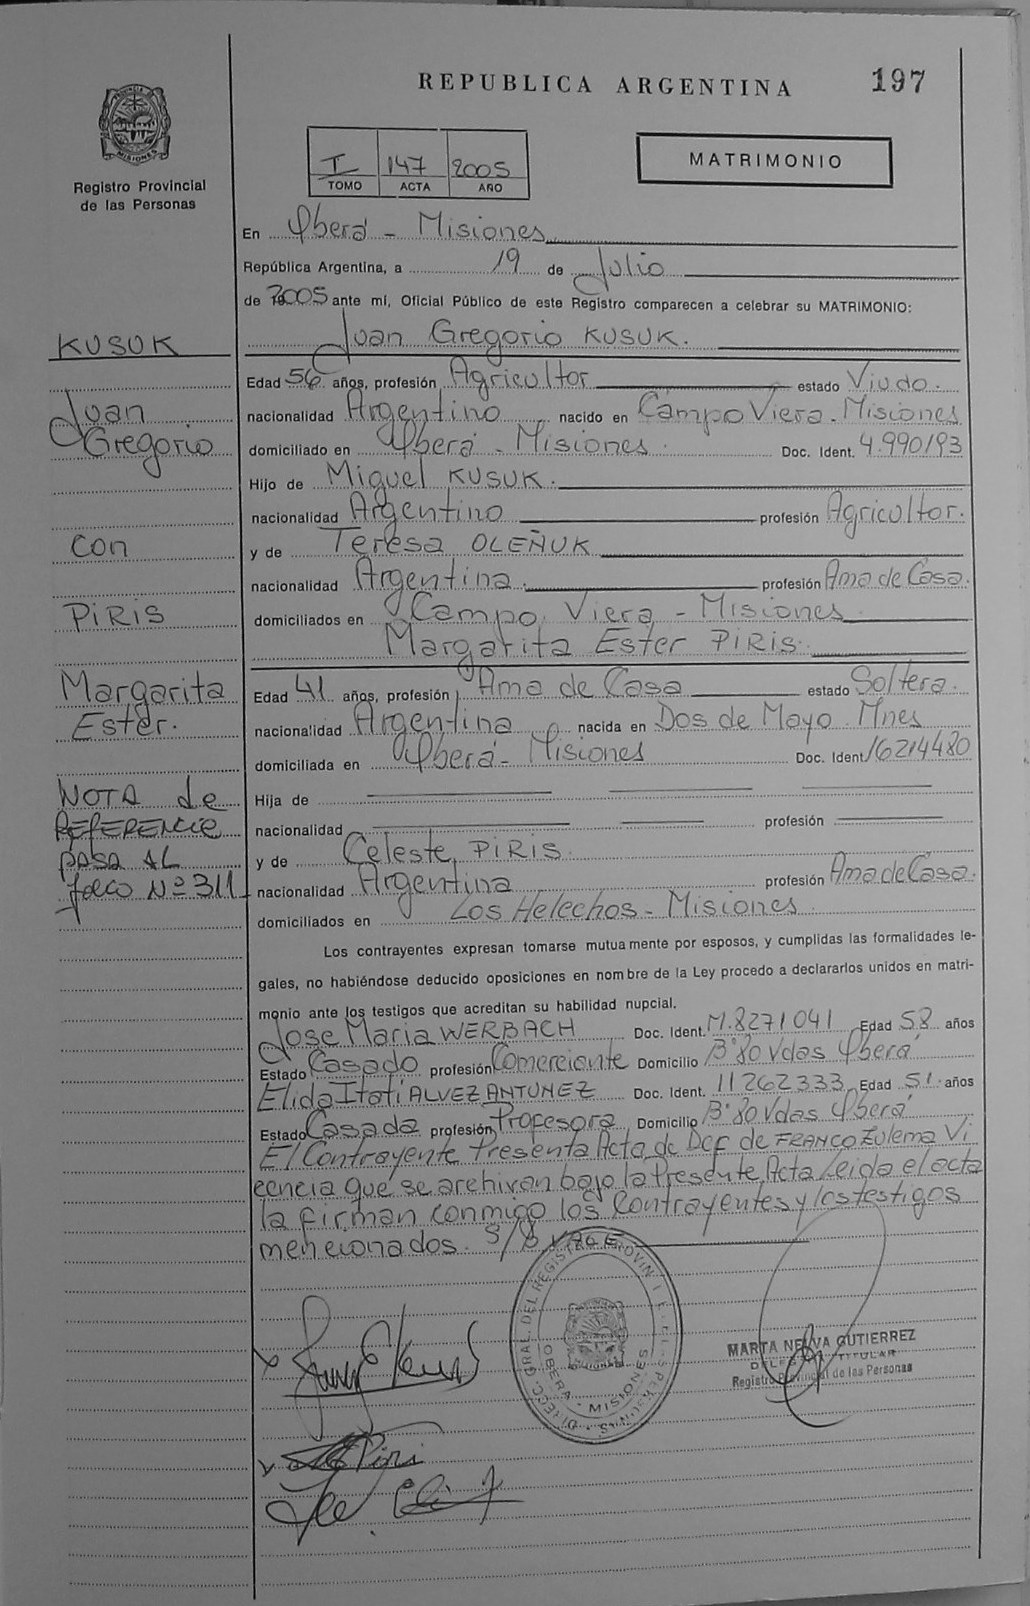 REPUBLICA ARGENTINA 197
Registro Provincial
de las Personas
I 147 2005
TOMO ACTA AÑO
MATRIMONIO
En Oberá - Misiones
República Argentina, a 19 de Julio
de 2005 ante mí, Oficial Público de este Registro comparecen a celebrar su MATRIMONIO:
Juan Gregorio KUSUK.
Edad 56 años, profesión Agricultor estado Viudo.
nacionalidad Argentino nacido en Campo Viera - Misiones
domiciliado en Oberá - Misiones. Doc. Ident. 4.990193
Hijo de Miguel KUSUK.
nacionalidad Argentino profesión Agricultor.
y de Teresa OLEÑUK
nacionalidad Argentina. profesión Ama de Casa.
domiciliados en Campo Viera - Misiones
Margarita Ester PIRIS.
Edad 41 años, profesión Ama de Casa estado Soltera.
nacionalidad Argentina nacida en Dos de Mayo - Mnes
domiciliada en Oberá - Misiones Doc. Ident. 16214480
Hija de
nacionalidad profesión
y de Celeste PIRIS.
nacionalidad Argentina profesión Ama de Casa.
domiciliados en Los Helechos - Misiones.
Los contrayentes expresan tomarse mutuamente por esposos, y cumplidas las formalidades le-
gales, no habiéndose deducido oposiciones en nombre de la Ley procedo a declararlos unidos en matri-
monio ante los testigos que acreditan su habilidad nupcial.
Jose Maria WERBACH Doc. Ident. M.8271041 Edad 58 años
Estado Casado profesión Comerciante Domicilio Bº 80 Vdas Oberá
Elida Itatí ALVEZ ANTUNEZ Doc. Ident. 11262333 Edad 51 años
Estado Casada profesión Profesora Domicilio Bº 80 Vdas Oberá
El Contrayente Presenta Acta de Def de FRANCO Zulema Vi
cencia que se archivan bajo la Presente Acta Leida el acta
la firman conmigo los Contrayentes y los testigos
mencionados.
KUSUK
Juan
Gregorio
con
PIRIS
Margarita
Ester.
NOTA de
REFERENCIA
PASA AL
folio Nº 311
DIRECC. GRAL. DEL REGISTRO PROVIN
OBERA - MISIONES
MARTA NELVA GUTIERREZ
DELEGADA TITULAR
Registro Provincial de las Personas
Piris
MISIONES